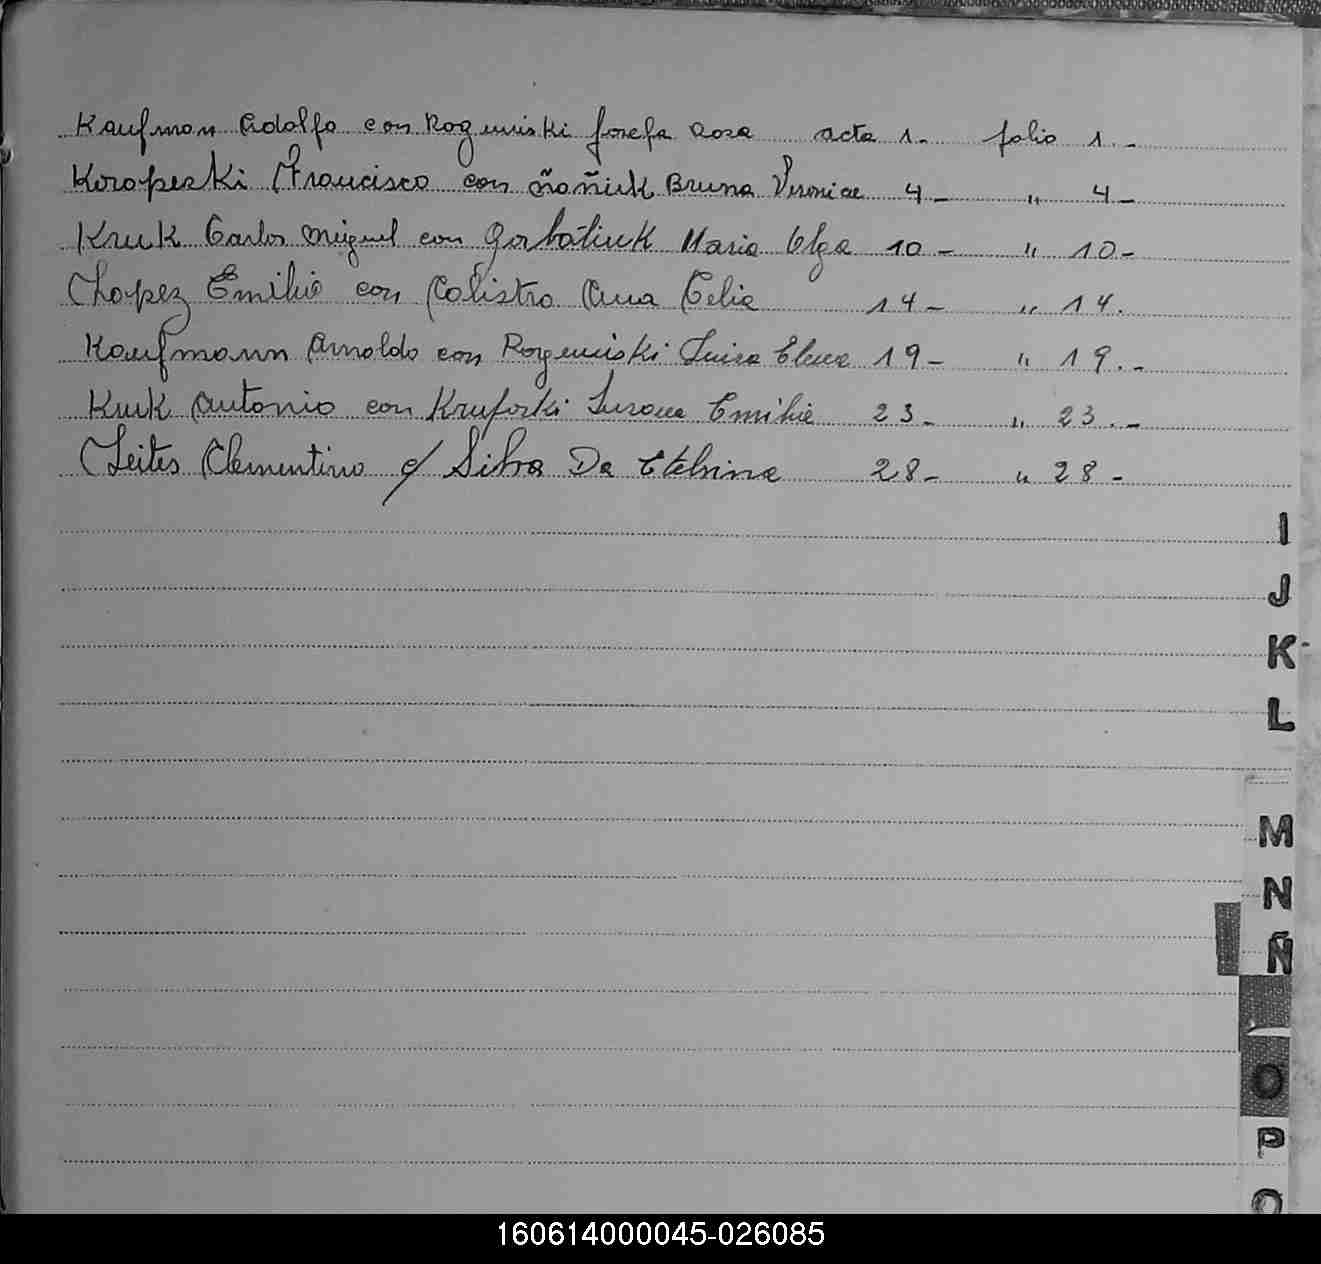 Kaufman Adolfo con Rogeruiski Josefa Rosa acta 1.- folio 1.-
Koropeski Francisco con Ñañiuk Bruna Veronica 4- " 4-
Kruk Carlos Miguel con Gorbatiuk Maria Olga 10- " 10-
Lopez Emilio con Calistro Ana Celia 14- " 14.
Kaufmann Arnoldo con Luisa Elena 19- " 19.-
Kuik Antonio con Emilia 23- " 23.-
Leites Clementino c/ Silva Da Etelvina 28- " 28-
I
J
K
L
M
N
Ñ
O
P
Q
160614000045-026085